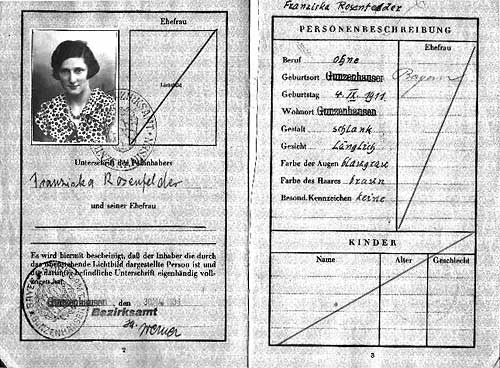 Ehefrau
Unterschrift des Paßinhabers
Franziska Rosenfelder
und seiner Ehefrau
Es wird hiermit bescheinigt, daß der Inhaber die durch
das obenstehende Lichtbild dargestellte Person ist und
die darunter befindliche Unterschrift eigenhändig voll-
zogen hat.
Gunzenhausen, den
Bezirksamt
Werner
2
Franziska Rosenfelder
PERSONENBESCHREIBUNG
Ehefrau
Beruf ohne
Geburtsort Gunzenhausen Bayern
Geburtstag 4. IX. 1911
Wohnort Gunzenhausen
Gestalt schlank
Gesicht länglich
Farbe der Augen blaugrau
Farbe des Haares braun
Besond. Kennzeichen keine
KINDER
Name Alter Geschlecht
3